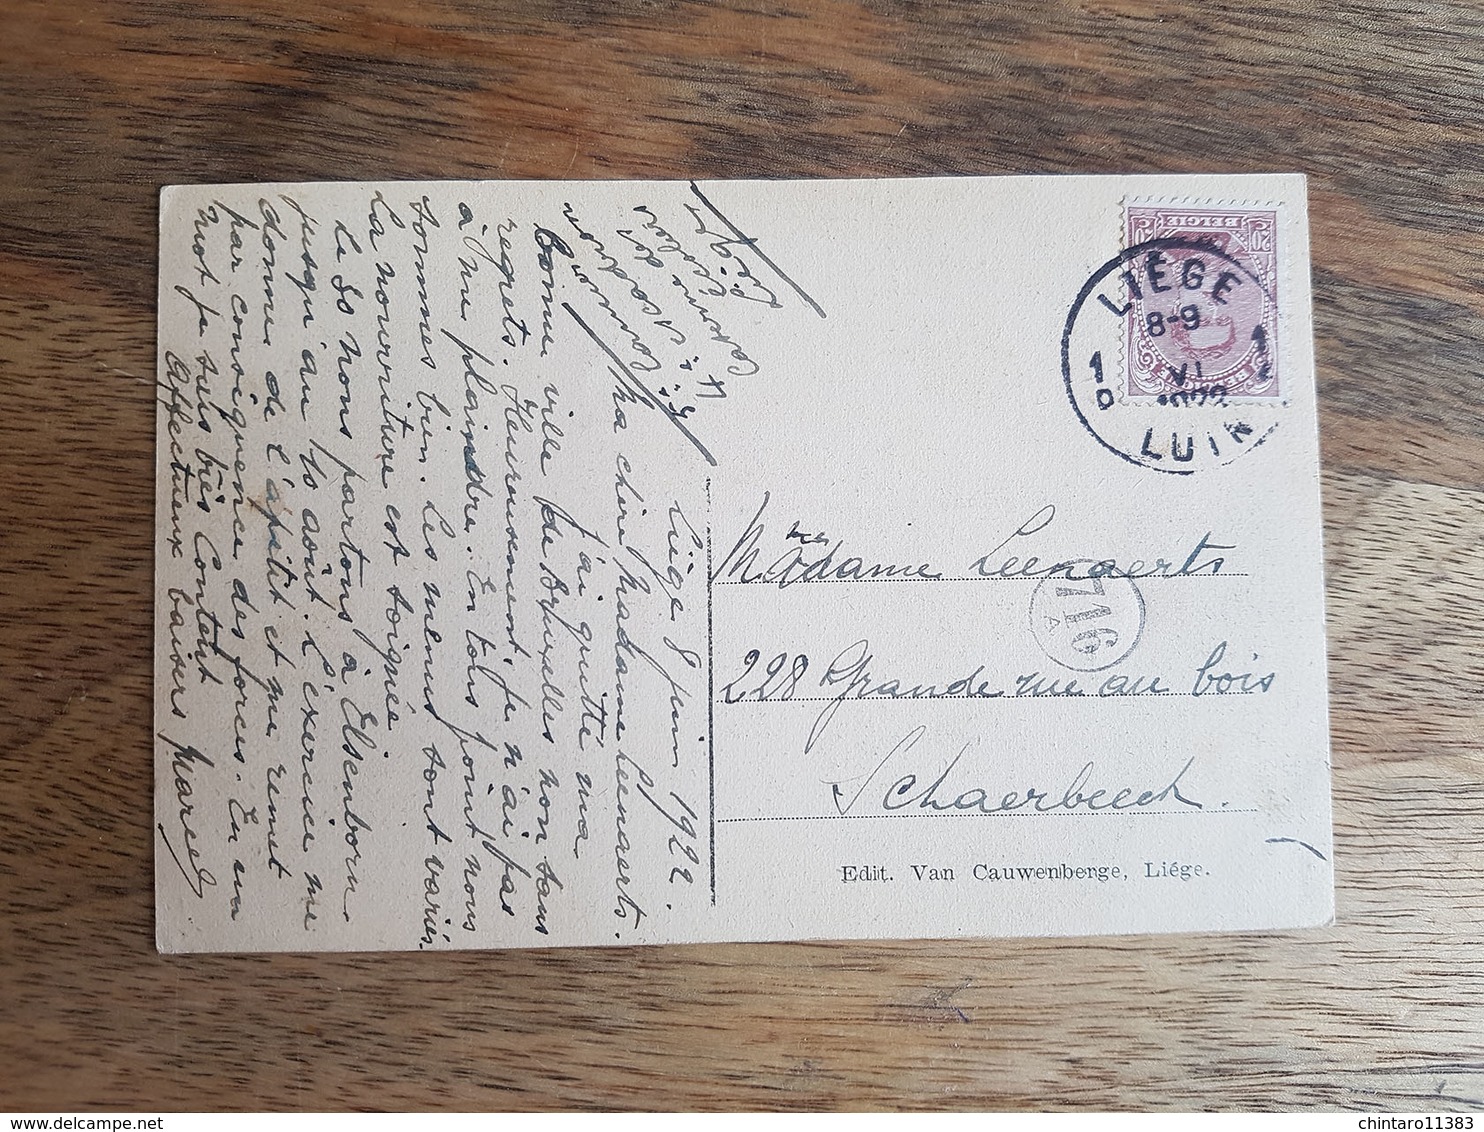 Liège 8 juin 1922.
Ma chère Madame Leenaerts.
J'ai quitté ma
bonne ville de Bruxelles non sans
regrets. Heureusement, je n'ai pas
à me plaindre. En tous point nous
sommes bien. Les menus sont variés.
La nourriture est soignée
Le 30 nous partons à Elsenborn
jusqu'au 10 août. L'exercice me
donne de l'apétit et me remet
par conséquence des forces. En un
mot je suis très Content
Affectueux baisers Marcel
Liége
BELGIE
20
LIÉGE
8-9
1
1
VI
1922
LUIK
Madame Leenaerts
716
A
228 Grande rue au bois
Schaerbeeck.
Edit. Van Cauwenberge, Liége.
chintaro11383